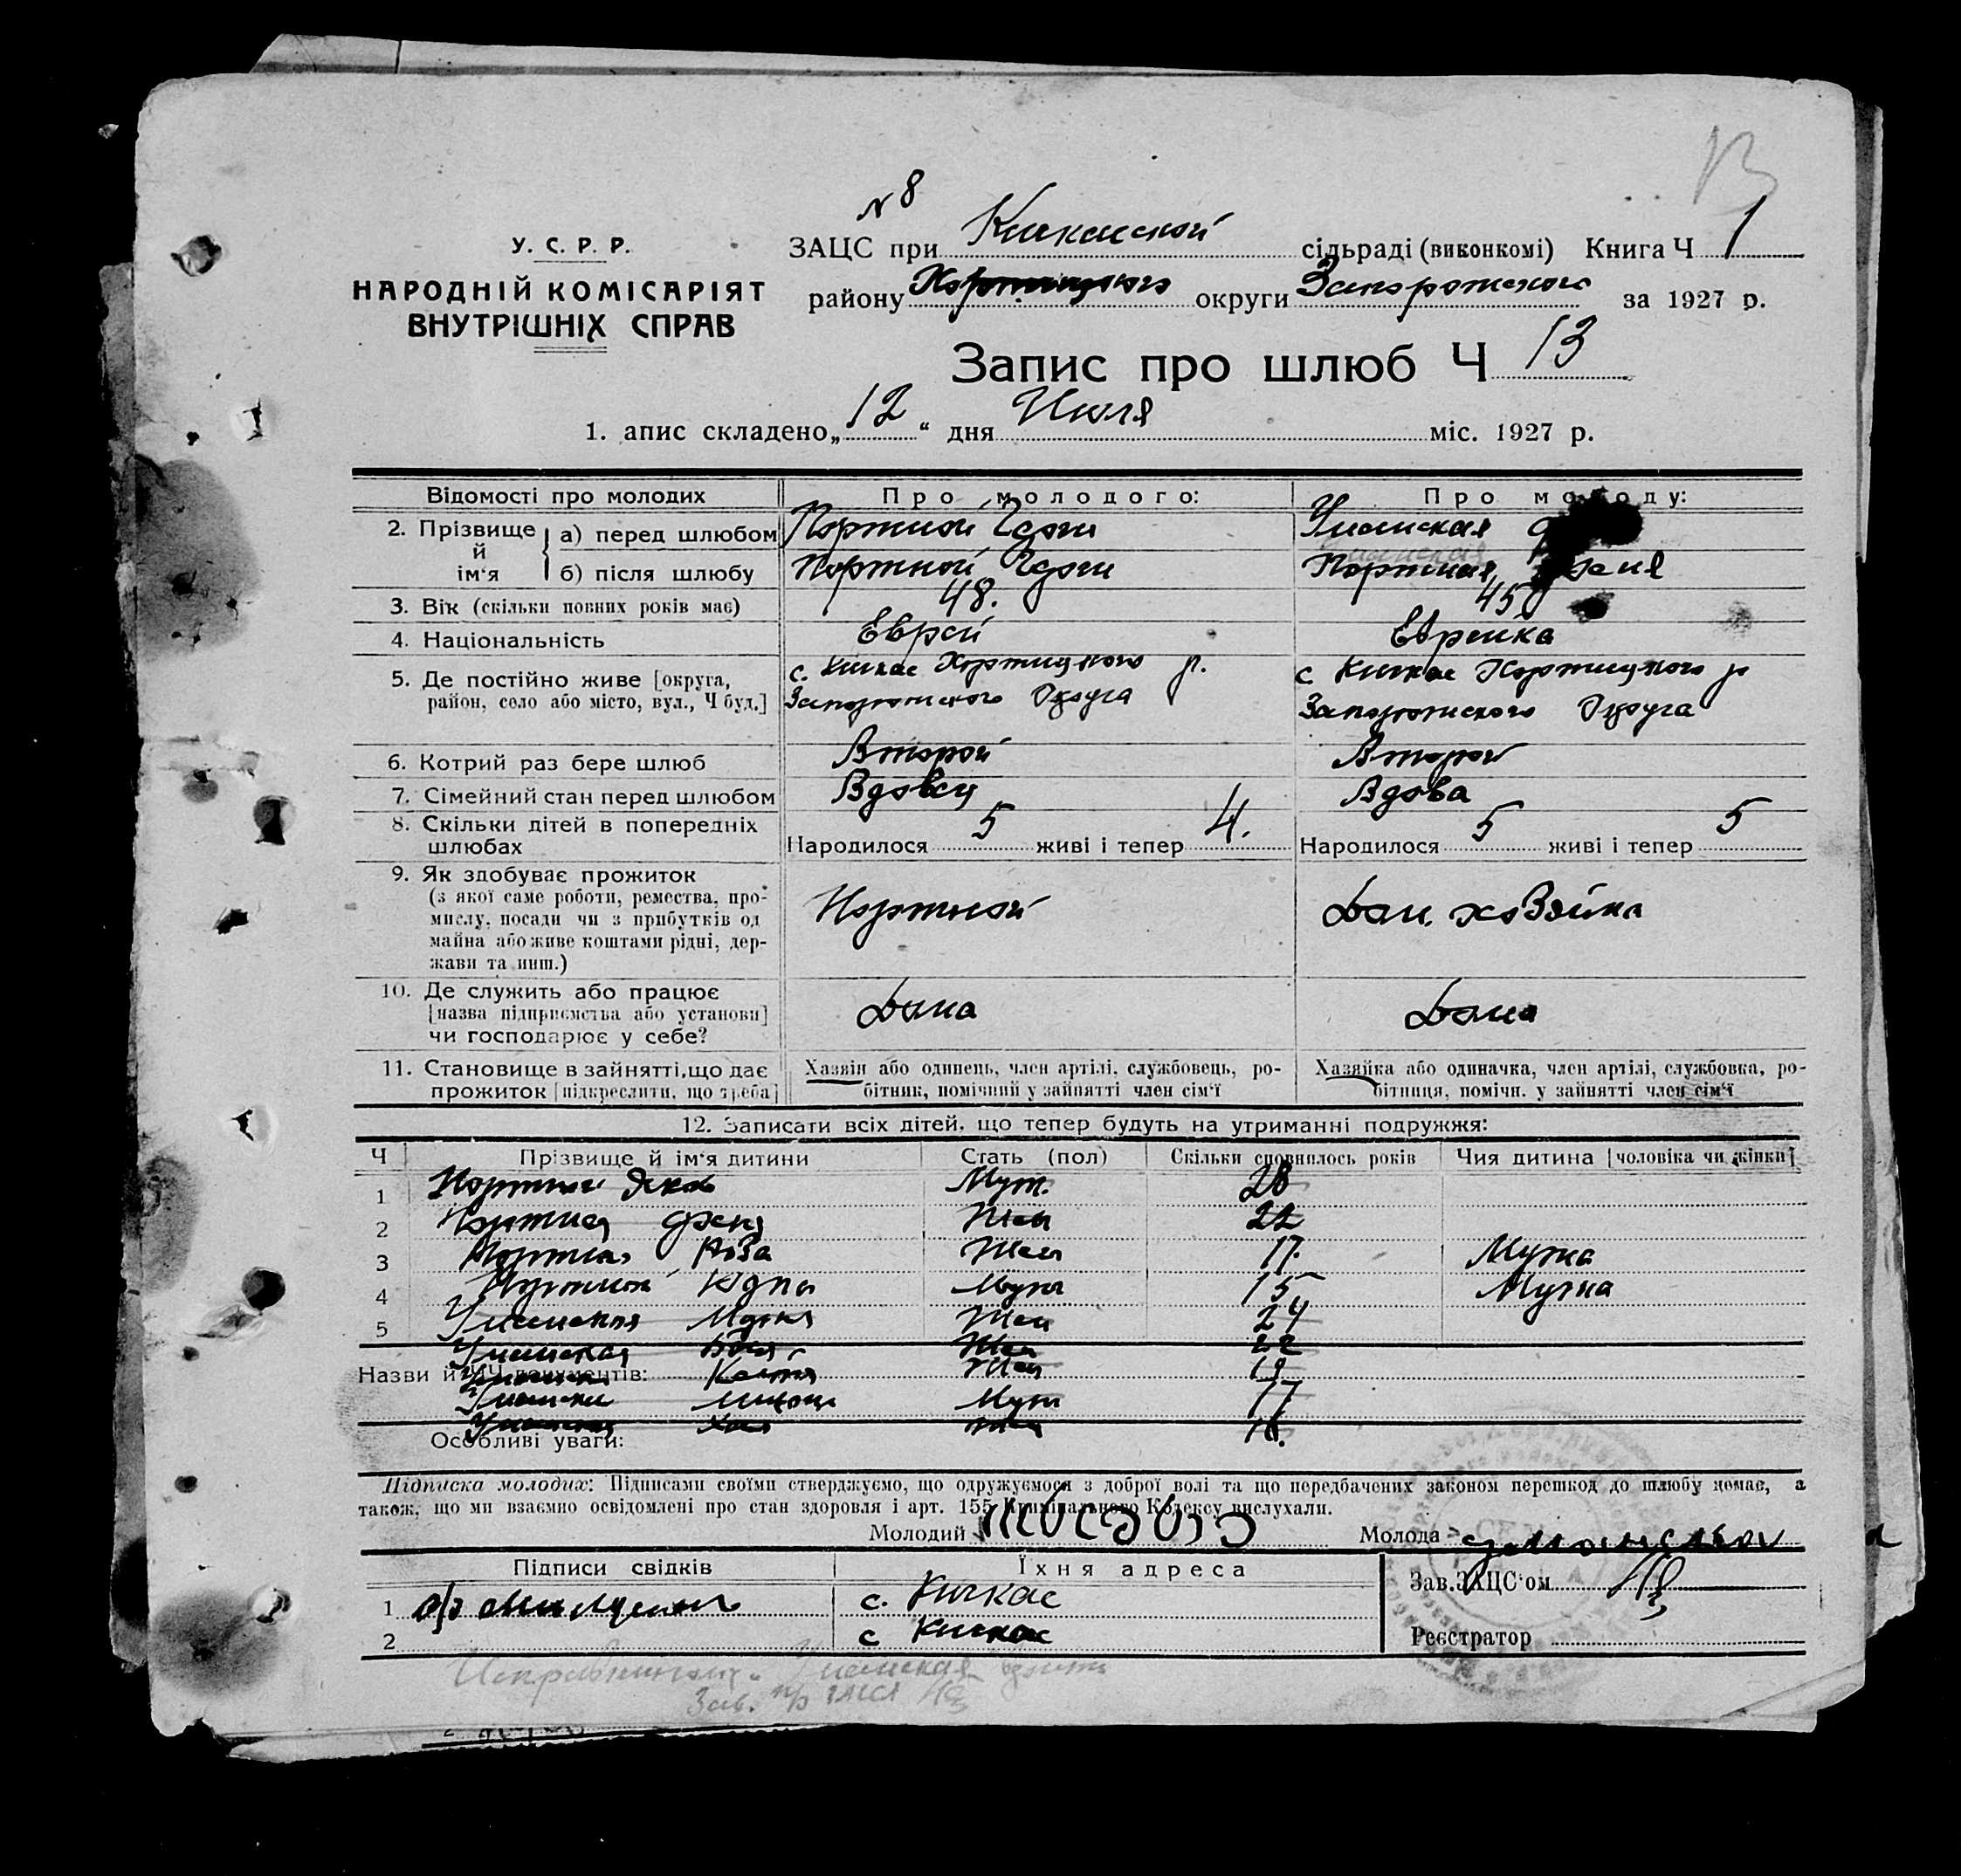 13
N 8
У. С. Р. Р.
НАРОДНІЙ КОМІСАРІЯТ
ВНУТРІШНІХ СПРАВ
ЗАЦС при Кичкаской сільраді (виконкомі) Книга Ч 1
району Хортицкого округи Запорожского за 1927 р.
Запис про шлюб Ч 13
1. апис складено „12“ дня Июля міс. 1927 р.
Відомості про молодих Про молодого: Про молоду:
2. Прізвище й ім‘я
а) перед шлюбом Портной Уманская
б) після шлюбу Портной Портная
3. Вік (скільки повних років має) 48. 45
4. Національність Еврей Еврейка
5. Де постійно живе [округа, район, село або місто, вул., Ч буд.]
с. Кичкас Хортицкого р. Запорожского Округа
с Кичкас Хортицкого р Запорожского Округа
6. Котрий раз бере шлюб Второй Второй
7. Сімейний стан перед шлюбом Вдовец Вдова
8. Скільки дітей в попередніх шлюбах
Народилося 5 живі і тепер 4. Народилося 5 живі і тепер 5
9. Як здобуває прожиток
(з якої саме роботи, ремества, про-
мислу, посади чи з прибутків од
майна або живе коштами рідні, дер-
жави та инш.)
Портной Дом. хозяйка
10. Де служить або працює
[назва підприємства або установи]
чи господарює у себе?
Дома Дома
11. Становище в зайнятті, що дає
прожиток [підкреслити, що треба]
Хазяін або одинець, член артілі, службовець, ро-
бітник, помічний у зайнятті член сім‘ї
Хазяйка або одиначка, член артілі, службовка, ро-
бітниця, помічн. у зайнятті член сім‘ї
12. Записати всіх дітей, що тепер будуть на утриманні подружжя:
Ч Прізвище й ім‘я дитини Стать (пол) Скільки сповнилось років Чия дитина [чоловіка чи жінки]
1 Портной Яков Муж. 28
2 Портная Феня Жен 22
3 Портная Роза Жен 17. Мужа
4 Портной Муж 15 Мужа
5 Уманская Жен 24
Уманская Жен 22
Назви й ЧЧ документів: Катя Жен 19
Муж 17
Уманская Хая Жен 16.
Особливі уваги:
Підписка молодих: Підписами своїми стверджуємо, що одружуємося з доброї волі та що передбачених законом перешкод до шлюбу немає, а
також, що ми взаємно освідомлені про стан здоровля і арт. 155 Кримінального Кодексу вислухали.
Молодий Молода
Підписи свідків Їхня адреса
Зав. ЗАЦС‘ом
1 с. Кичкас
2 с Кичкас
Реєстратор
Уманская
Зав.